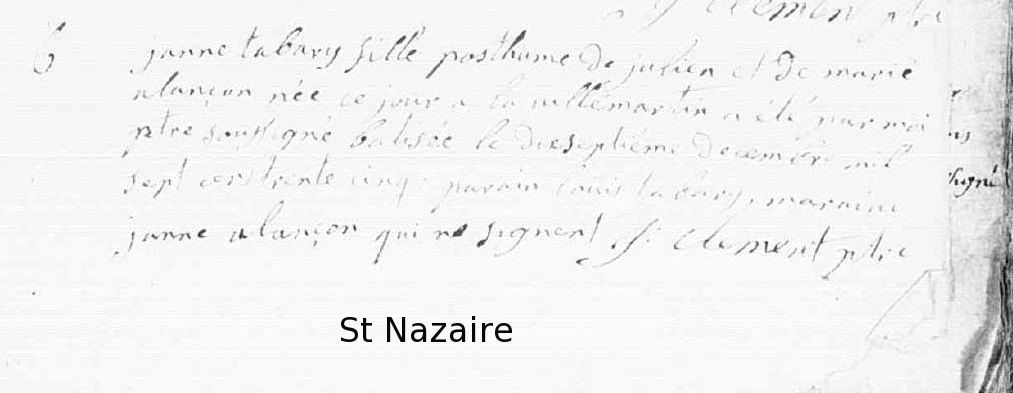 St Clement ptre
b janne tabary fille posthume de julien et de marie
alançon née ce jour a la villemartin a été par moi
ptre soussigné batisée le dixseptiéme decembre mil
sept cent trente cinq. parain louis tabary, maraine
janne alançon qui ne signent St Clement ptre
signé
St Nazaire